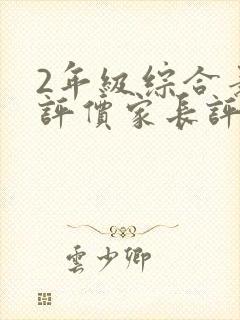 2年級綜合
評價家長評
雲少卿